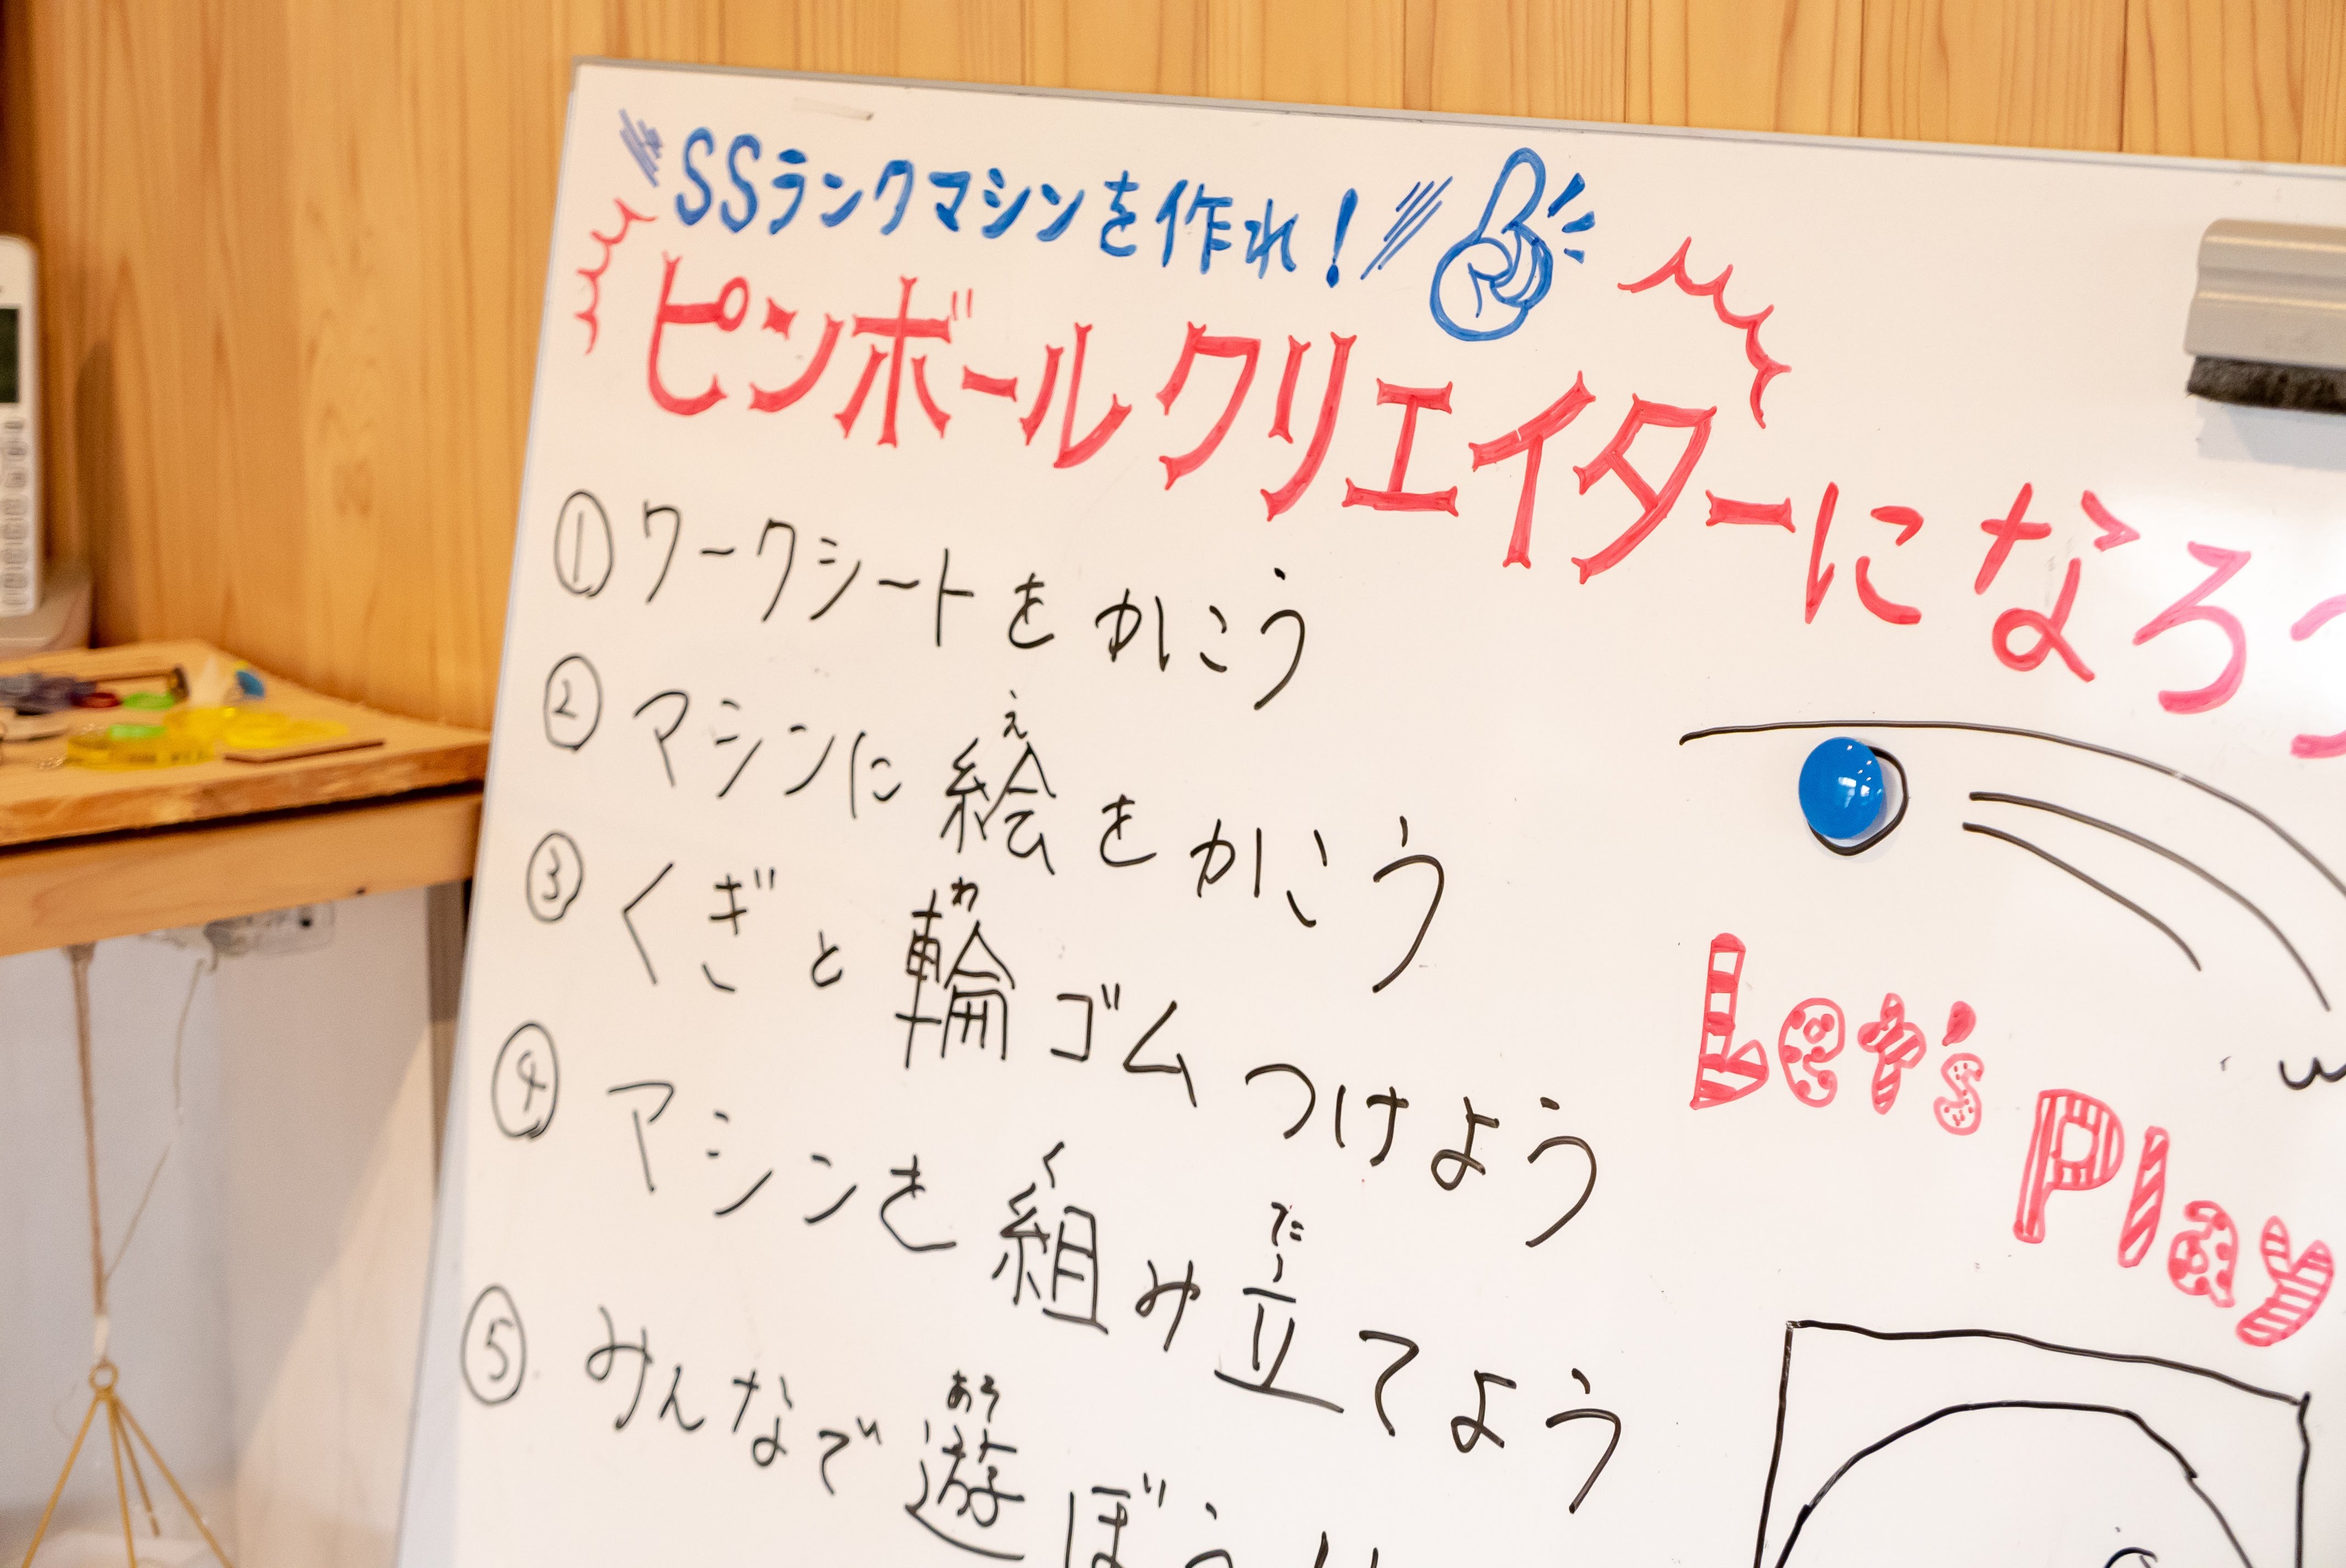 SSランクマシンを作れ！
ピンボールクリエイターになろう
① ワークシートをかこう
② マシンに絵をかこう
え
③ くぎと輪ゴムつけよう
わ
④ マシンを組み立てよう
く た
⑤ みんなで遊ぼう
あそ
Let's
Play